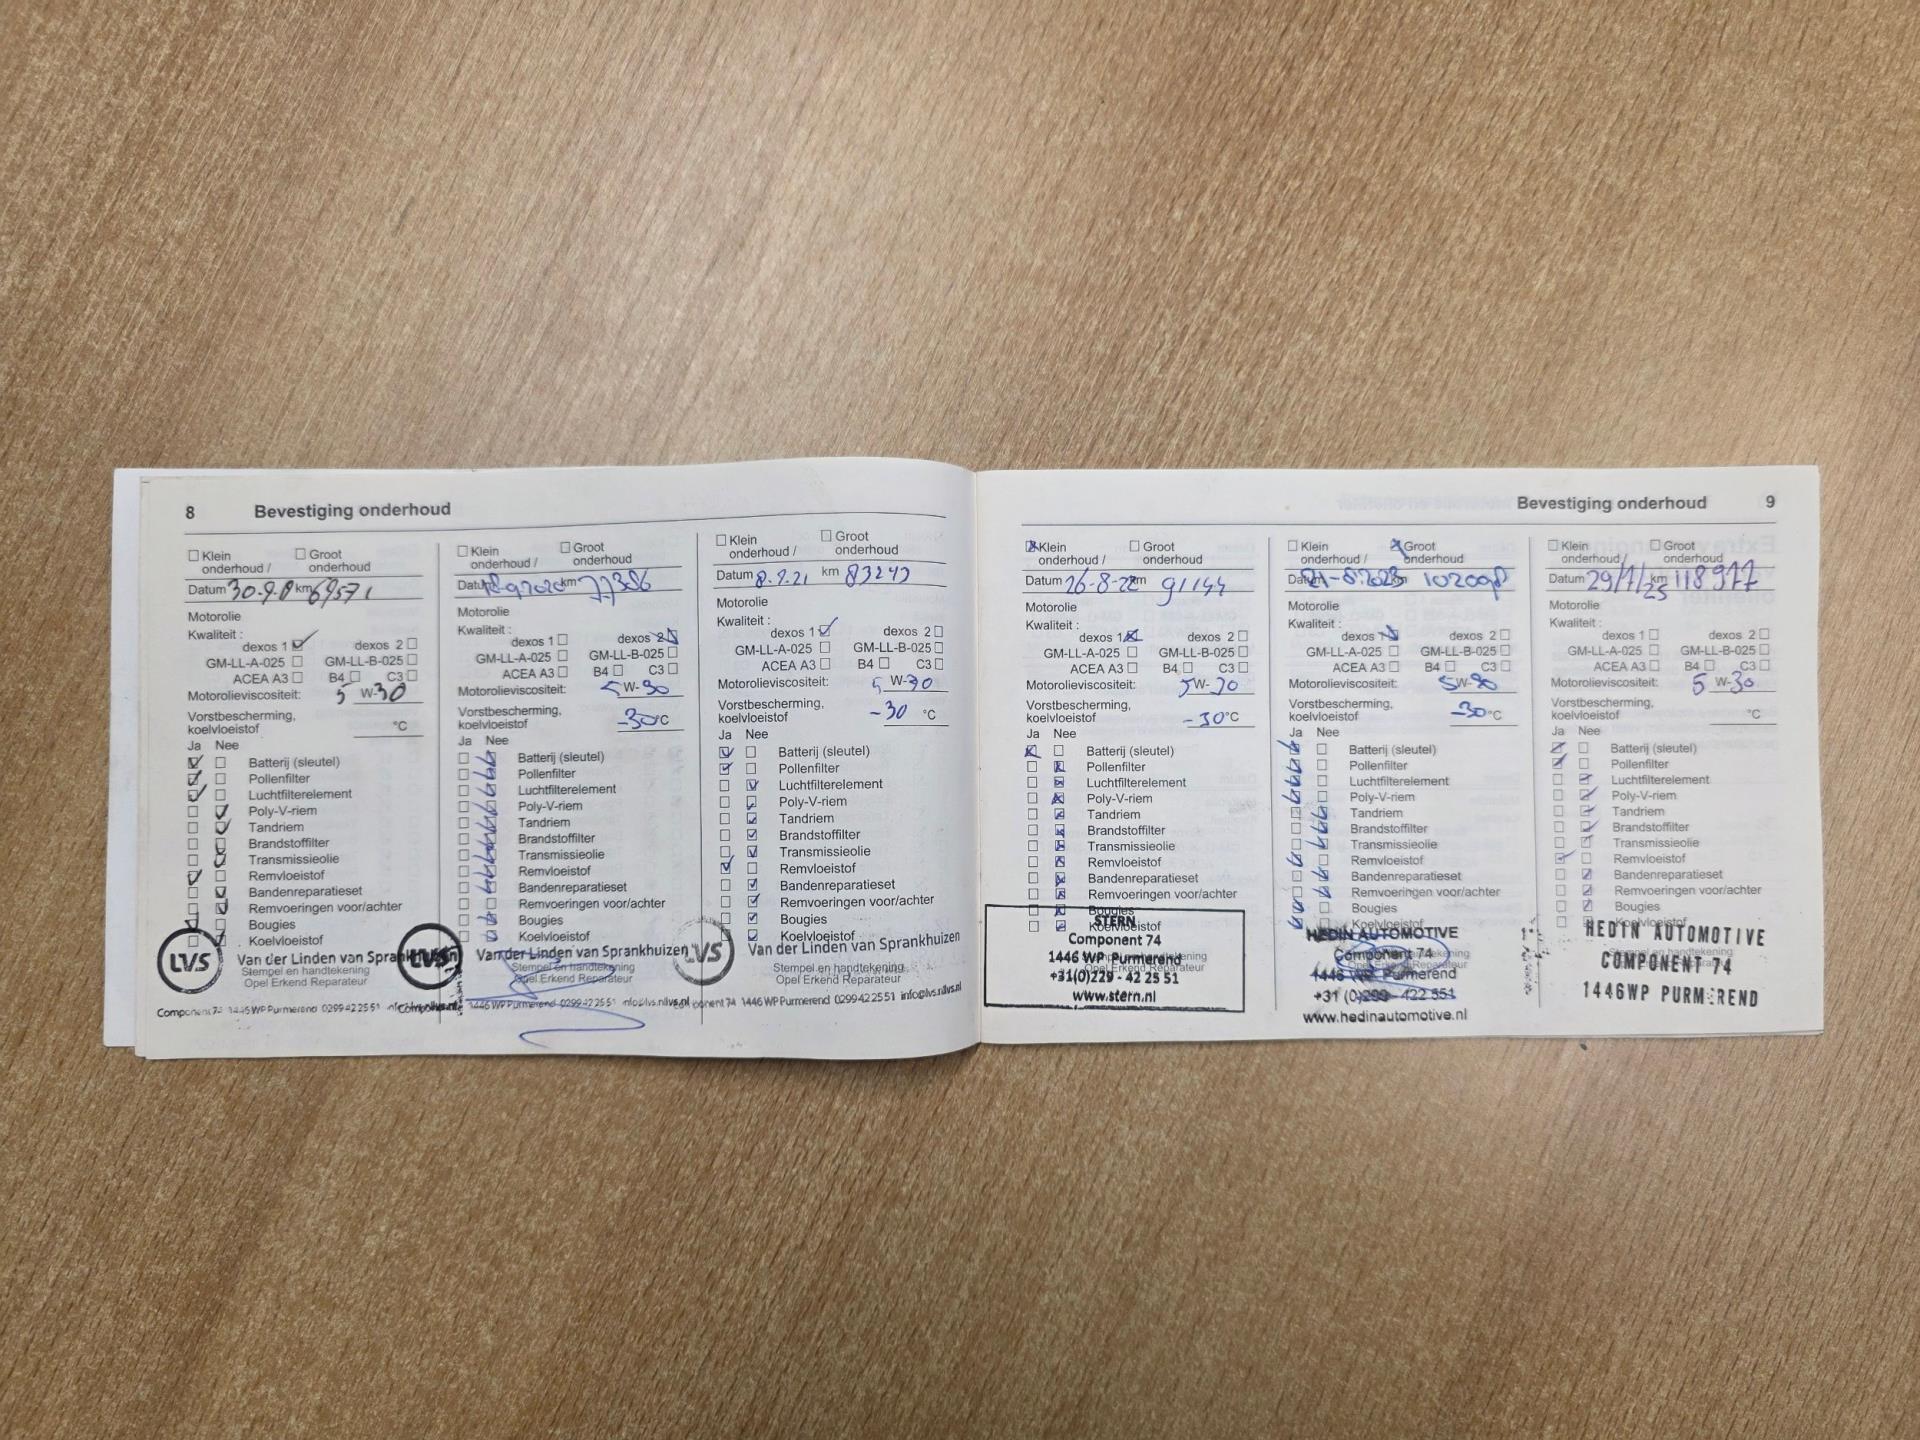 8 Bevestiging onderhoud
Klein onderhoud / Groot onderhoud
Datum km 69571
Motorolie
Kwaliteit :
dexos 1 dexos 2
GM-LL-A-025 GM-LL-B-025
ACEA A3 B4 C3
Motorolieviscositeit: 5 W-30
Vorstbescherming,
koelvloeistof °C
Ja Nee
Batterij (sleutel)
Pollenfilter
Luchtfilterelement
Poly-V-riem
Tandriem
Brandstoffilter
Transmissieolie
Remvloeistof
Bandenreparatieset
Remvoeringen voor/achter
Bougies
Koelvloeistof
LVS Van der Linden van Sprankhuizen
Stempel en handtekening
Opel Erkend Reparateur
Component 74 1446 WP Purmerend 0299 42 25 51
Klein onderhoud / Groot onderhoud
Datum 18-9-2020 km 77386
Motorolie
Kwaliteit :
dexos 1 dexos 2
GM-LL-A-025 GM-LL-B-025
ACEA A3 B4 C3
Motorolieviscositeit: 5 W-30
Vorstbescherming,
koelvloeistof -30 °C
Ja Nee
Batterij (sleutel)
Pollenfilter
Luchtfilterelement
Poly-V-riem
Tandriem
Brandstoffilter
Transmissieolie
Remvloeistof
Bandenreparatieset
Remvoeringen voor/achter
Bougies
Koelvloeistof
LVS Van der Linden van Sprankhuizen
Stempel en handtekening
Opel Erkend Reparateur
1446 WP Purmerend 0299 42 25 51 info@lvs.nl
Klein onderhoud / Groot onderhoud
Datum 8-9-21 km 83243
Motorolie
Kwaliteit :
dexos 1 dexos 2
GM-LL-A-025 GM-LL-B-025
ACEA A3 B4 C3
Motorolieviscositeit: 5 W-30
Vorstbescherming,
koelvloeistof -30 °C
Ja Nee
Batterij (sleutel)
Pollenfilter
Luchtfilterelement
Poly-V-riem
Tandriem
Brandstoffilter
Transmissieolie
Remvloeistof
Bandenreparatieset
Remvoeringen voor/achter
Bougies
Koelvloeistof
LVS Van der Linden van Sprankhuizen
Stempel en handtekening
Opel Erkend Reparateur
1446 WP Purmerend 0299 42 25 51 info@lvs.nl
Bevestiging onderhoud 9
Klein onderhoud / Groot onderhoud
Datum 26-8-22 km 91144
Motorolie
Kwaliteit :
dexos 1 dexos 2
GM-LL-A-025 GM-LL-B-025
ACEA A3 B4 C3
Motorolieviscositeit: 5W-30
Vorstbescherming,
koelvloeistof -30 °C
Ja Nee
Batterij (sleutel)
Pollenfilter
Luchtfilterelement
Poly-V-riem
Tandriem
Brandstoffilter
Transmissieolie
Remvloeistof
Bandenreparatieset
Remvoeringen voor/achter
Bougies
Koelvloeistof
STERN
Component 74
1446 WP Purmerend
Opel Erkend Reparateur
+31(0)229 - 42 25 51
www.stern.nl
Klein onderhoud / Groot onderhoud
Datum 21-8-2023 km
Motorolie
Kwaliteit :
dexos 1 dexos 2
GM-LL-A-025 GM-LL-B-025
ACEA A3 B4 C3
Motorolieviscositeit: 5W-30
Vorstbescherming,
koelvloeistof -30 °C
Ja Nee
Batterij (sleutel)
Pollenfilter
Luchtfilterelement
Poly-V-riem
Tandriem
Brandstoffilter
Transmissieolie
Remvloeistof
Bandenreparatieset
Remvoeringen voor/achter
Bougies
Koelvloeistof
HEDIN AUTOMOTIVE
Component 74
1446 WP Purmerend
+31 (0)299 - 422 551
www.hedinautomotive.nl
Klein onderhoud / Groot onderhoud
Datum 29/1/25 km 118977
Motorolie
Kwaliteit :
dexos 1 dexos 2
GM-LL-A-025 GM-LL-B-025
ACEA A3 B4 C3
Motorolieviscositeit: 5 W-30
Vorstbescherming,
koelvloeistof °C
Ja Nee
Batterij (sleutel)
Pollenfilter
Luchtfilterelement
Poly-V-riem
Tandriem
Brandstoffilter
Transmissieolie
Remvloeistof
Bandenreparatieset
Remvoeringen voor/achter
Bougies
Koelvloeistof
HEDIN AUTOMOTIVE
COMPONENT 74
1446WP PURMEREND